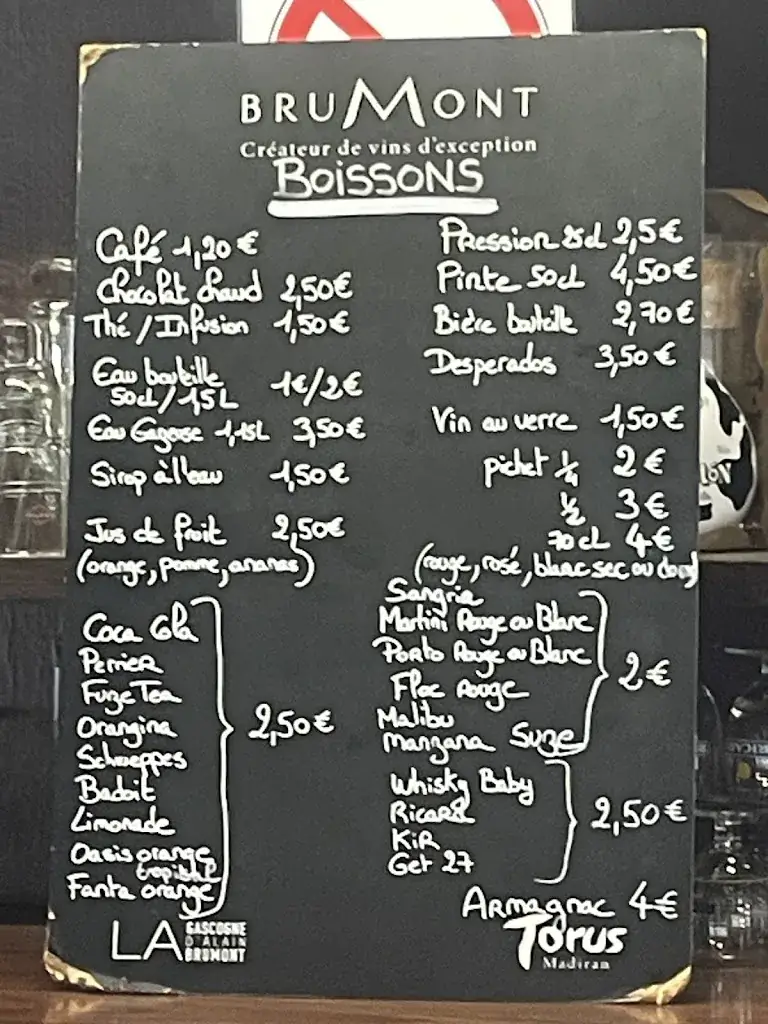 BRUMONT
Créateur de vins d'exception
BOISSONS
Café 1,20€
Chocolat chaud 2,50€
Thé / Infusion 1,50€
Eau bouteille 1€/2€
50cl / 1,5L
Eau Gazeuse 1,15L 3,50€
Sirop à l'eau 1,50€
Jus de fruit 2,50€
(orange, pomme, ananas)
Coca Cola
Perrier
Fuze Tea
Orangina 2,50€
Schweppes
Badoit
Limonade
Oasis orange
tropical
Fanta orange
Pression 25cl 2,5€
Pinte 50cl 4,50€
Bière bouteille 2,70€
Desperados 3,50€
Vin au verre 1,50€
pichet 1/4 2€
1/2 3€
70cL 4€
(rouge, rosé, blanc sec ou doux)
Sangria
Martini Rouge ou Blanc
Porto Rouge ou Blanc 2€
Floc Rouge
Malibu
Manzana Suze
Whisky Baby
Ricard 2,50€
Kir
Get 27
Armagnac 4€
LA GASCOGNE
D'ALAIN
BRUMONT
Torus
Madiran